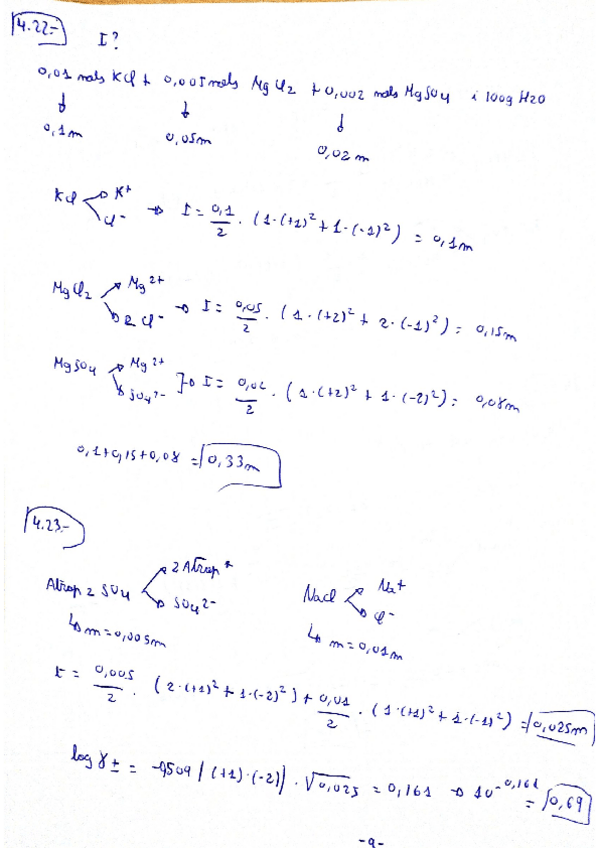 4.22.-
I?
0,01 mols KCl + 0,005 mols MgCl2 + 0,002 mols MgSO4 i 100g H2O
↓ ↓ ↓
0,1m 0,05m 0,02m
KCl → K+
Cl- → I = 0,1/2 · (1·(+1)² + 1·(-1)²) = 0,1m
MgCl2 → Mg2+
2Cl- → I = 0,05/2 · (1·(+2)² + 2·(-1)²) = 0,15m
MgSO4 → Mg2+
SO4 2- → I = 0,02/2 · (1·(+2)² + 1·(-2)²) = 0,08m
0,1 + 0,15 + 0,08 = 0,33m
4.23.-
Atrop2SO4 → 2 Atrop+
SO4 2-
↳ m = 0,005m
NaCl → Na+
Cl-
↳ m = 0,01m
I = 0,005/2 · (2·(+1)² + 1·(-2)²) + 0,01/2 · (1·(+1)² + 1·(-1)²) = 0,025m
log γ± = -0,509 |(+1)·(-2)| · √0,025 = 0,161 → 10^-0,161 = 0,69
-9-